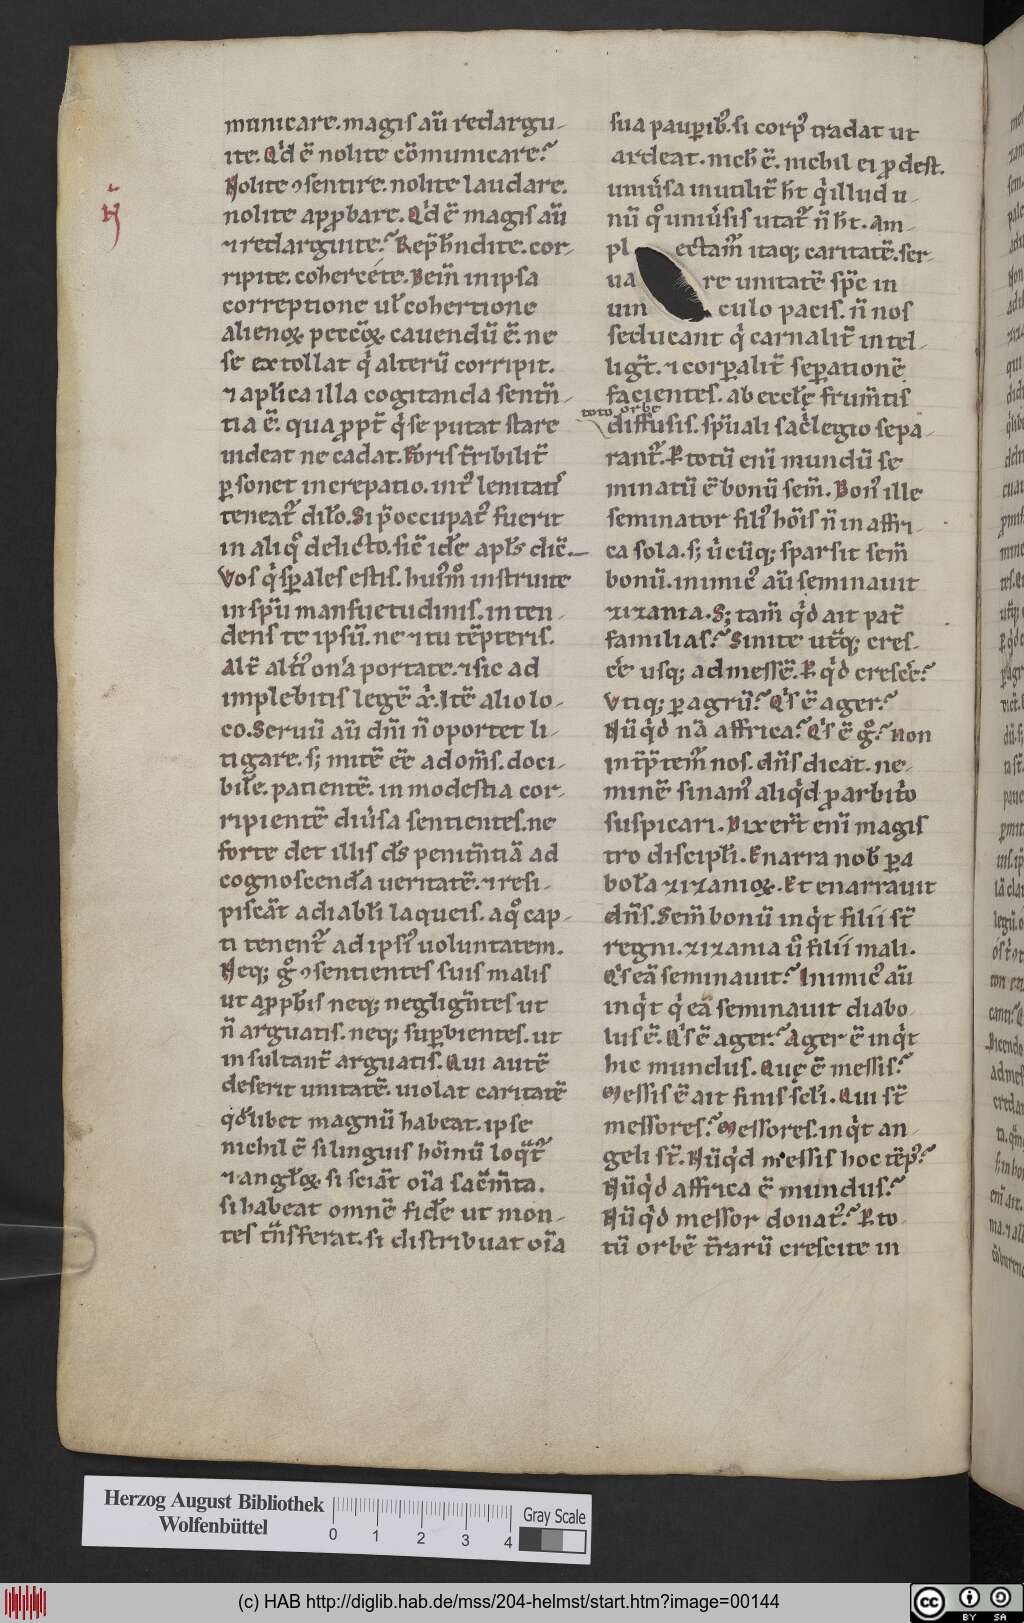 municare. magis aū redargu-
ite. Qͥd ē nolite cōmunicare?
Nolite ꝯsentire. nolite laudare.
nolite apꝓbare. Qͥd ē magis aū
⁊ redarguite? Rep̄hndite. cor-
ripite. cohercete. Deīn in ipsa
correptione ul̄ cohertione
alienoꝝ peccōꝝ cauendū ē. ne
se extollat qͥ alterū corripit.
⁊ apl̄ica illa cogitanda sentn̄-
tia ē. qua ꝓpt̄ qͥ se putat stare
uideat ne cadat. Foris t̄ribilit̄
ꝑsonet increpatio. intꝰ lenitatis
teneat᷑ dil̄o. Si p̄occupatꝰ fuerit
in aliqͦ delicto. sic̄ idē apl̄s dic̄.
Vos qͥ sp̄ales estis. huiꝰmͦ instruite
in sp̄u mansuetudinis. inten-
dens te ipsū. ne ⁊ tu tēpteris.
Alt̄ altiꝰ onͣa portate. ⁊ sic ad
implebitis legē xͥ. Itē alio lo-
co. Seruū aū dn̄i n̄ oportet li-
tigare. sꝫ mitē ee᷑ ad om̄s. doci-
bile᷑. patientē. in modestia cor-
ripientē diuͥsa sentientes. ne
forte det illis ds̄ penitn̄tiā ad
cognoscendā ueritatē. ⁊ resi-
piscāt a diabl̄i laqueis. a qͦ cap-
ti tenent᷑ ad ipsiꝰ uoluntatem.
Neqꝫ gͦ ꝯsentientes suis malis
ut apꝓbis neqꝫ neglign̄tes ut
n̄ arguatis. neqꝫ suꝑbientes. ut
insultant̄ arguatis. Qui autē
deserit unitatē. uiolat caritatē
qd̄libet magnū habeat. ipse
nichil ē. si linguis hoīnū loqͣt᷑
⁊ angl̄oꝝ. si sciāt oīa sacm̄ta.
si habeat omnē fidē ut mon-
tes tn̄sferat. si distribuat oīa
sua pauꝑibꝰ. si corpꝰ tradat ut
ardeat. nich̄ ē. nichil ei ꝓdest.
uniuͥsa inutilit̄ h̄t qͥ illud u-
nū qͦ uniuͥsis utat᷑ n̄ h̄t. Am-
plectam᷑ itaqꝫ caritatē. ser-
uare unitatē sp̄c in
uinculo pacis. n̄ nos
seducant qͥ carnalit̄ intel-
ligt̄. ⁊ corꝑalit̄ seꝑationē
facientes. ab eccl̄ę frum̄tis
toto orbe
diffusis. sp̄uali sacͥlegio sepa-
rant᷑. Ꝑ totū enī mundū se
minatū ē bonū sem̄. Bonꝰ ille
seminator filiꝰ hoīs n̄ in affri-
ca sola. sꝫ uͥcūqꝫ sparsit sem̄
bonū. inimicꝰ aū seminauit
zizania. Sꝫ tam̄ qͥd ait pat̄
familias? Sinite utͣqꝫ cres-
cē usqꝫ ad messē. Ꝑ qͥd crescē?
Vtiqꝫ ꝑ agrū? Qͥs ē ager?
Nūqͥd nā affrica? Qͥs ē gͦ? Non
int̄p̄tem᷑ nos. dn̄s dicat. ne-
minē sinamꝰ aliqͥd ꝓ arbitͥo
suspicari. Dixer̄t enī magis
tro discipl̄i. Enarra nob̄ ꝑa
bolā zizanioꝝ. Et enarrauit
dn̄s. Sem̄ bonū inqͥt filii st̄
regni. zizania u᷑ filii mali.
Qͥs eā seminauit? Inimicꝰ aū
inqͥt qͥ eā seminauit diabo-
lus ē. Qͥs ē ager? Ager ē inqͥt
hic mundus. Quę ē messis?
Messis ē ait finis scl̄i. Qui st̄
messores? Messores. inqͥt an-
geli st̄. Nūqͥd messis hoc tēpꝰ?
Nūqͥd affrica ē mundus?
Nūqͥd messor donatꝰ? Ꝑ to
tū orbē t̄rarū crescite in
Herzog August Bibliothek
Wolfenbüttel
0 1 2 3 4
Gray Scale
(c) HAB http://diglib.hab.de/mss/204-helmst/start.htm?image=00144
cc BY SA